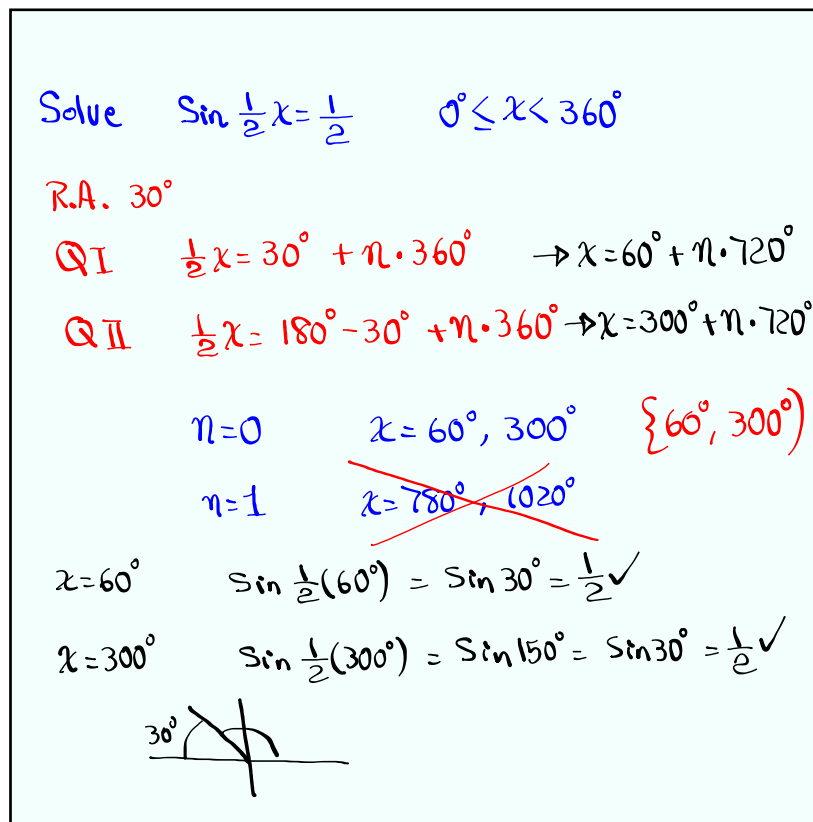 Solve Sin 1/2 x = 1/2 0° ≤ x < 360°
R.A. 30°
QI 1/2 x = 30° + n·360° → x = 60° + n·720°
QII 1/2 x = 180° - 30° + n·360° → x = 300° + n·720°
n=0 x = 60°, 300° {60°, 300°)
n=1 x = 780°, 1020°
x=60° Sin 1/2 (60°) = Sin 30° = 1/2 ✓
x=300° Sin 1/2 (300°) = Sin 150° = Sin 30° = 1/2 ✓
30°